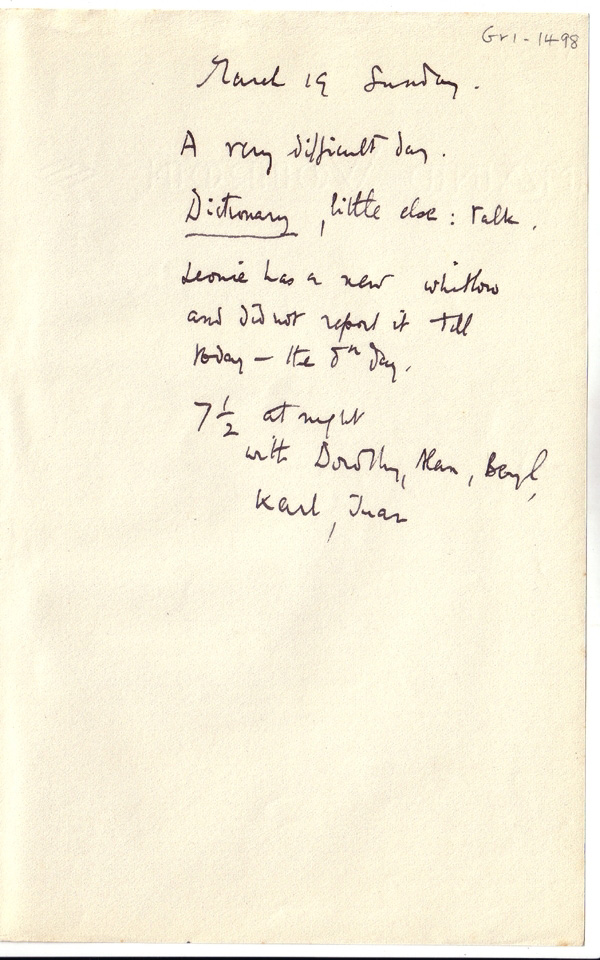 Gr1-1498
March 19 Sunday.
A very difficult day.
Dictionary, little else: talk.
Leonie has a new whitlow
and did not report it till
today — the 5th day.
7 1/2 at night
with Dorothy, Alan, Beryl,
Karl, Juan